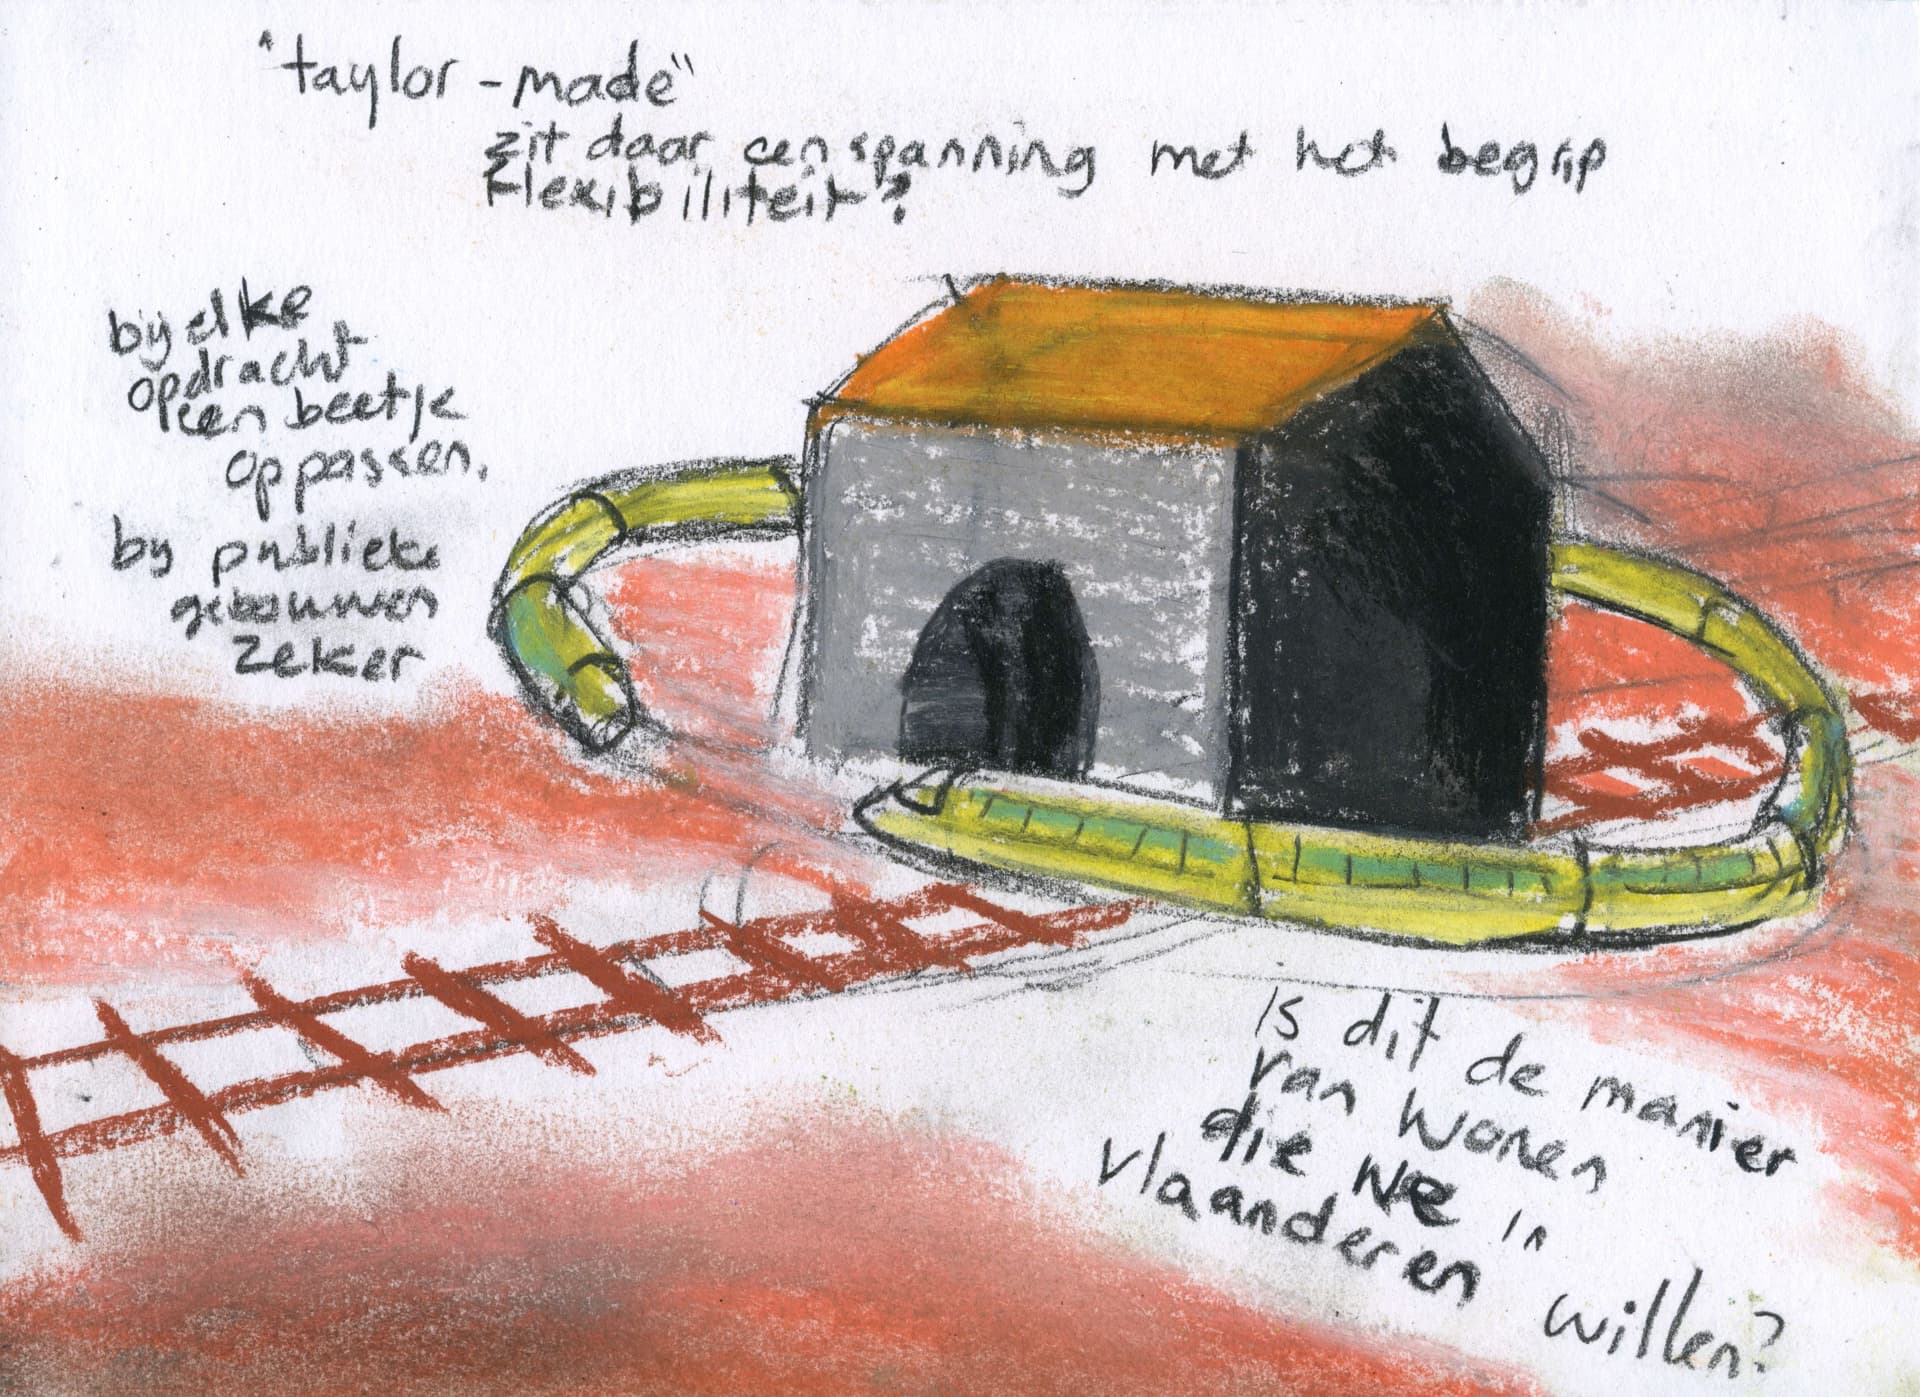 "taylor-made"
zit daar een spanning met het begrip
flexibiliteit?
bij elke
opdracht
een beetje
oppassen,
bij publieke
gebouwen
zeker
Is dit de manier
van wonen
die we in
vlaanderen willen?